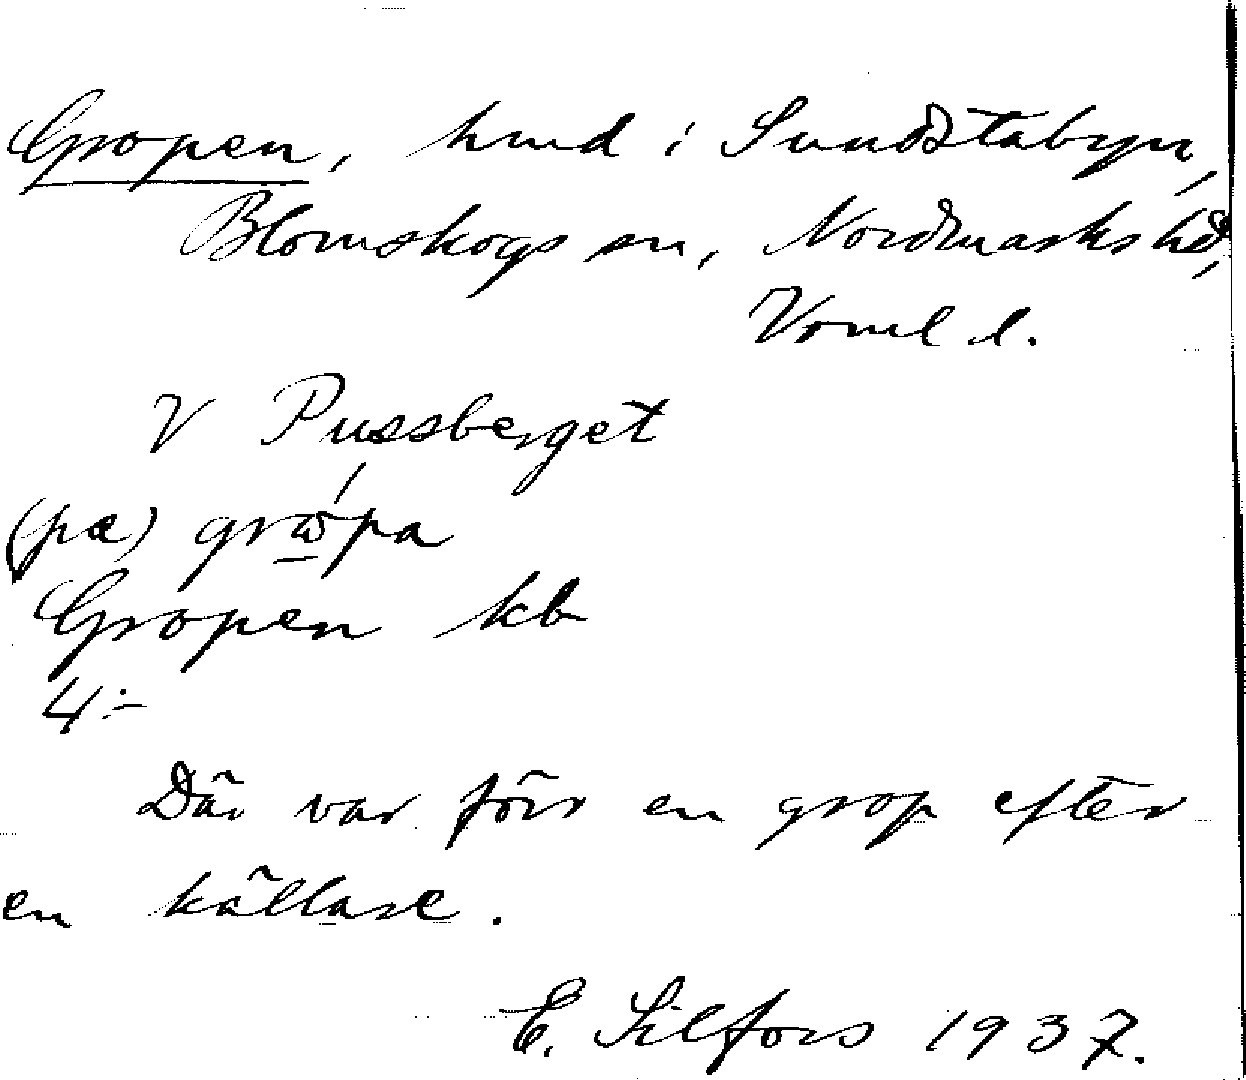 Gropen, hmd i Sundstabyn,
Blomskogs sn, Nordmarks hd,
Vrml l.
V Pussberget
(pæ) grώ̱pa
Gropen kb
4:-
Där var förr en grop efter
en källare.
E. Silfors 1937.